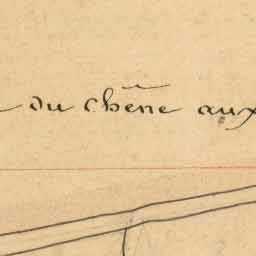 du Chêne aux